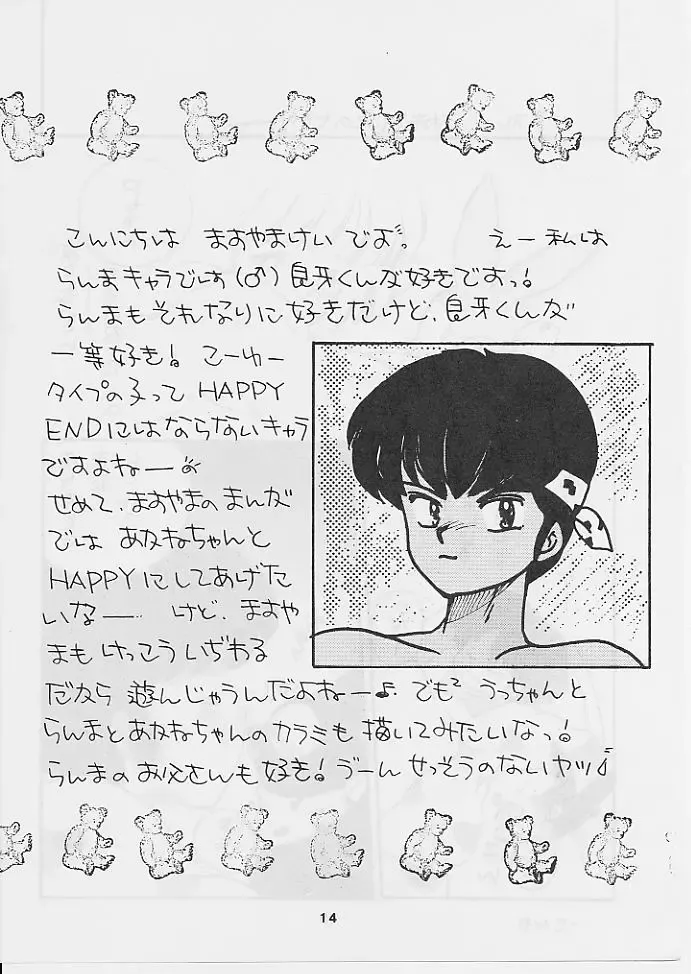 こんにちは ますやまけい です。 えー私は
らんまキャラでは(♂)良牙くんが好きですっ!
らんまもそれなりに好きだけど、良牙くんが
一等好き! こーゆー
タイプの子って HAPPY
ENDにはならないキャラ
ですよねー
せめて、ますやまのまんが
では あかねちゃんと
HAPPYにしてあげた
いなー けど、ますや
まもけっこういぢわる
だから 遊んじゃうんだよねー♪ でも² うっちゃんと
らんまとあかねちゃんのカラミも描いてみたいなっ!
らんまのお父さんも好き! うーん せっそうのないヤツ♪
14